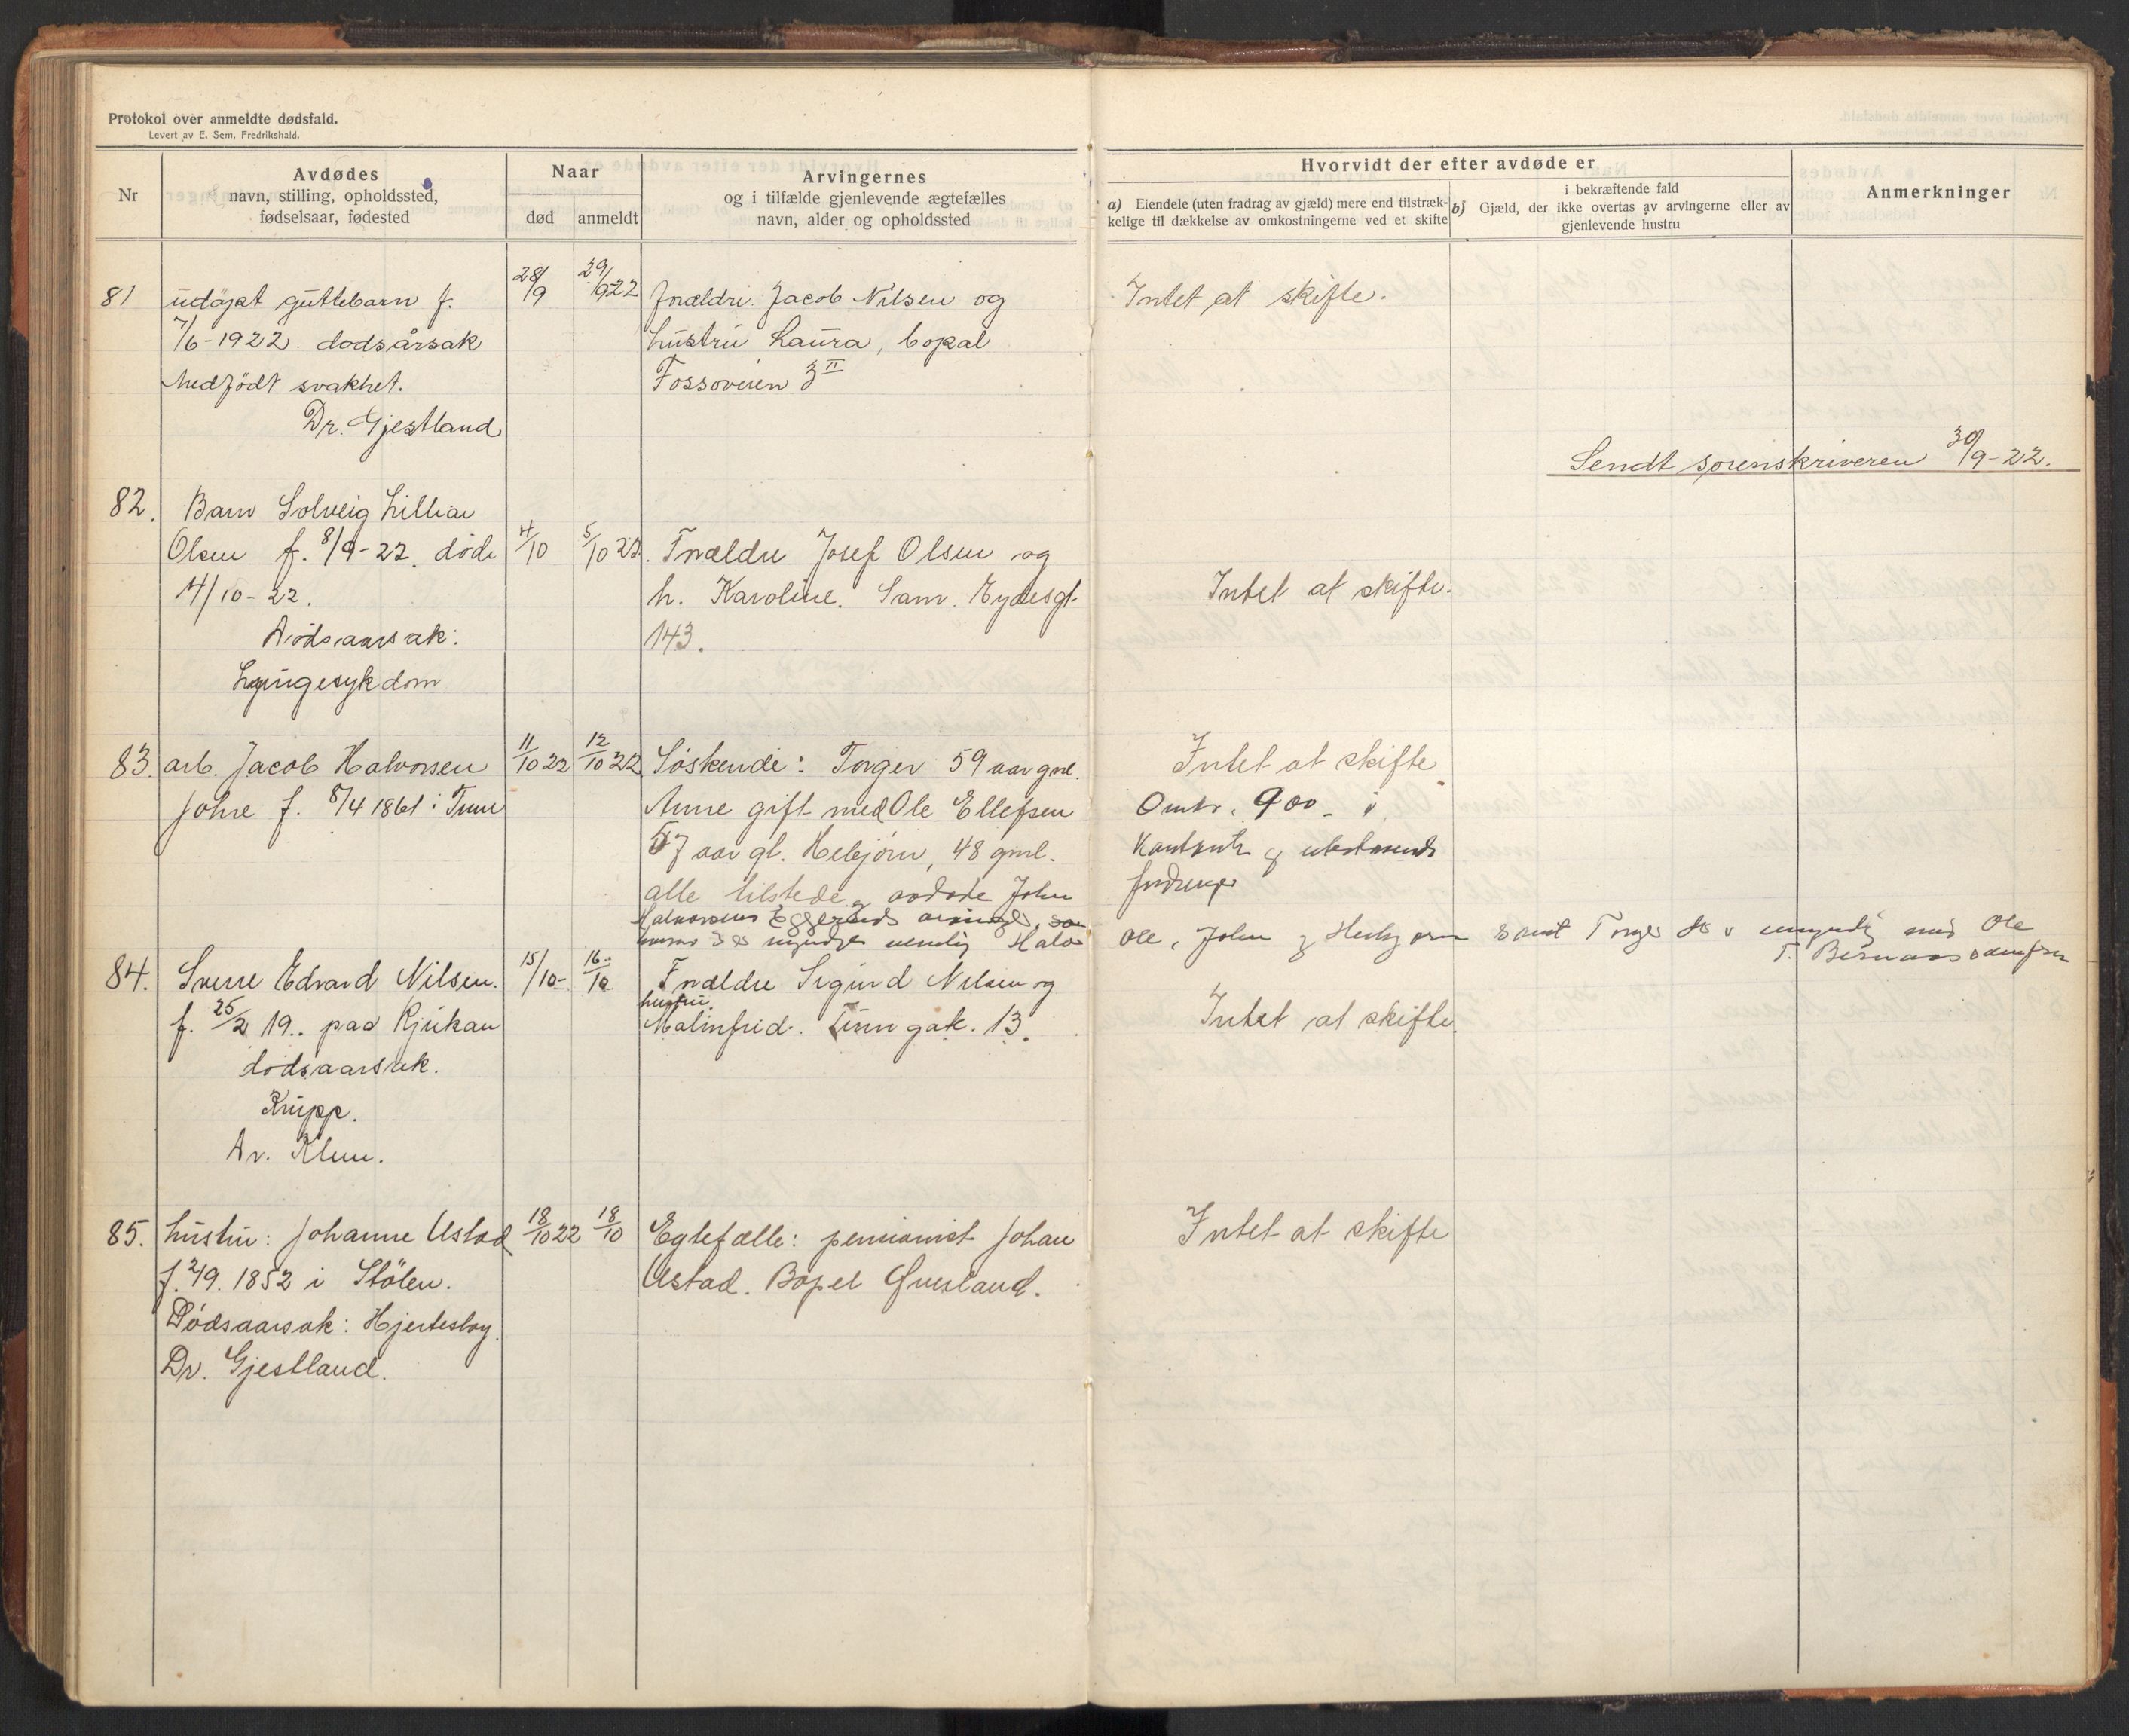 Protokol over anmeldte dødsfald.
Levert av E. Sem, Fredrikshald.
Nr
Avdødes
navn, stilling, opholdssted,
fødselsaar, fødested
Naar
død
anmeldt
Arvingernes
og i tilfælde gjenlevende ægtefælles
navn, alder og opholdssted
Hvorvidt der efter avdøde er
a) Eiendele (uten fradrag av gjæld) mere end tilstræk-
kelige til dækkelse av omkostningerne ved et skifte
i bekræftende fald
b) Gjæld, der ikke overtas av arvingerne eller av
gjenlevende hustru
Anmerkninger
81 udøpt guttebarn f. 28/9 29/9 22 Forældre. Jacob Nilsen og Intet at skifte.
7/6-1922. dodsårsak hustru Laura, bopæl
Medfödt svakhet. Fossoveien 3 II
Dr. Gjestland
Sendt sorenskriveren 30/9-22.
82. Barn Solveig Lillian
Olsen f. 8/9-22. døde 4/10 5/10 22. Forældre Josef Olsen og
4/10-22. h. Karoline. Sam. Eydesgt. Intet at skifte.
Dödsaarsak: 143.
Lungesykdom
83. arb. Jacob Halvorsen 11/10 22 12/10 22 Söskende: Torger 59 aar gml. Intet at skifte
Johre f. 8/4 1861 i Tinn Anne gift med Ole Ellefsen Omkr. 900 - i
57 aar gl. Hebjörn, 48 gml. Kontanter og utestaaende
alle tilstede og avdøde John fordringer
Halvorsens Eggeruds
myndige nemlig Halvor Ole, John og Herbjørn samt Torger umyndig med Ole
84. Sverre Edvard Nilsen. 15/10- 16/10 Forældre Sigurd Nilsen og
f. 25/2 19.. paa Rjukan hustru Malmfrid. Tinn gak. 13. Intet at skifte.
dödsaarsak.
Krupp.
Dr. Klem.
85. hustru: Johanne Ustad 18/10 22 18/10 Egtefælle: pensionist Johan Intet at skifte
f. 2/9. 1852 i Stölen. Ustad. Bopel Øverland.
Dödsaarsak: Hjerteslag.
Dr. Gjestland.